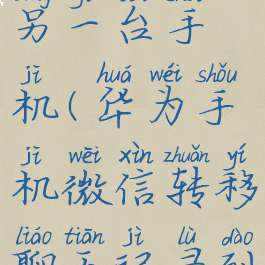 另一台手
jī huá wéi shǒu
机(华为手
jī wēi xìn zhuǎn yí
机微信转移
liáo tiān jì lù dào
聊天记录到